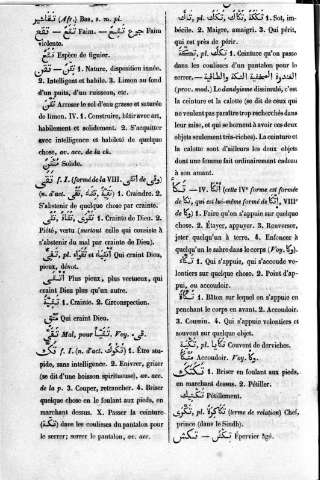 تفافير (Afr.) Bas, s. m. pl.
تقع Faim. — جوع تقع Faim
violente.
Espèce de figuier.
تقن — تقن 1. Nature, disposition innée.
2. Intelligent et habile. 3. Limon au fond
d'un puits, d'un ruisseau, etc.
تقن Arroser le sol d'eau grasse et saturée
de limon. IV. 1. Construire, bâtir avec art,
habilement et solidement. 2. S'acquitter
avec intelligence et habileté de quelque
chose, av. acc. de la ch.
متقن Solide.
تقى f. I. (formé de la VIII. اتقى de وقى)
(n. d'act. تقى, تقية, تقاء) 1. Craindre. 2.
S'abstenir de quelque chose par crainte.
تقوى, تقاة, تقى 1. Crainte de Dieu. 2.
Piété, vertu (surtout celle qui consiste à
s'abstenir du mal par crainte de Dieu).
تقى, pl. اتقياء et تقواء Qui craint Dieu,
pieux, dévot.
أتقى Plus pieux, plus vertueux, qui
craint Dieu plus qu'un autre.
تقية 1. Crainte. 2. Circonspection.
متقى Qui craint Dieu.
Mal, pour تقيا. Voy. قى.
تك f. I. (n. d'act. تكوك) 1. Être stu-
pide, sans intelligence. 2. Enivrer, griser
(se dit d'une boisson spiritueuse), av. acc.
de la p. 3. Couper, retrancher. 4. Briser
quelque chose en le foulant aux pieds, en
marchant dessus. X. Passer la ceinture
(تكة) dans les coulisses du pantalon pour
le serrer; serrer le pantalon, av. acc.
تاك, pl. تككة, تكاك, تكك 1. Sot, im-
bécile. 2. Maigre, amaigri. 3. Qui périt,
qui est près de périr.
تكة, pl. تكك 1. Ceinture qu'on passe
dans les coulisses d'un pantalon pour le
serrer. —
(prov. mod.) Le dandyisme dissimulé, c'est
la ceinture et la calotte (se dit de ceux qui
ne veulent pas paraître trop recherchés dans
leur mise, et qui se bornent à avoir ces deux
objets seulement très-riches). La ceinture et
la calotte sont d'ailleurs les deux objets
dont une femme fait ordinairement cadeau
à son amant.
تكأ — IV. أتكأ (cette IVe forme est formée
de تكأ, qui est lui-même formé de اتكأ, VIIIe
de وكأ) 1. Faire qu'on s'appuie sur quelque
chose. 2. Étayer, appuyer. 3. Renverser,
jeter quelqu'un à terre. 4. Enfoncer à
quelqu'un le sabre dans le corps (Voy. وكأ).
تكأة 1. Qui s'appuie, qui s'accoude vo-
lontiers sur quelque chose. 2. Point d'ap-
pui, ou accoudoir.
تكأة 1. Bâton sur lequel on s'appuie en
penchant le corps en avant. 2. Accoudoir.
3. Coussin. 4. Qui s'appuie volontiers et
souvent sur quelque objet.
تكية, pl. تكايا Couvent de derviches.
متكأ Accoudoir. Voy. وكأ.
تكتك 1. Briser en foulant aux pieds,
en marchant dessus. 2. Pétiller.
تكتيك Pétillement.
تكرى, pl. تكاكرة (terme de relation) Chef,
prince (dans le Sindh).
تكش — تكش Épervier âgé.